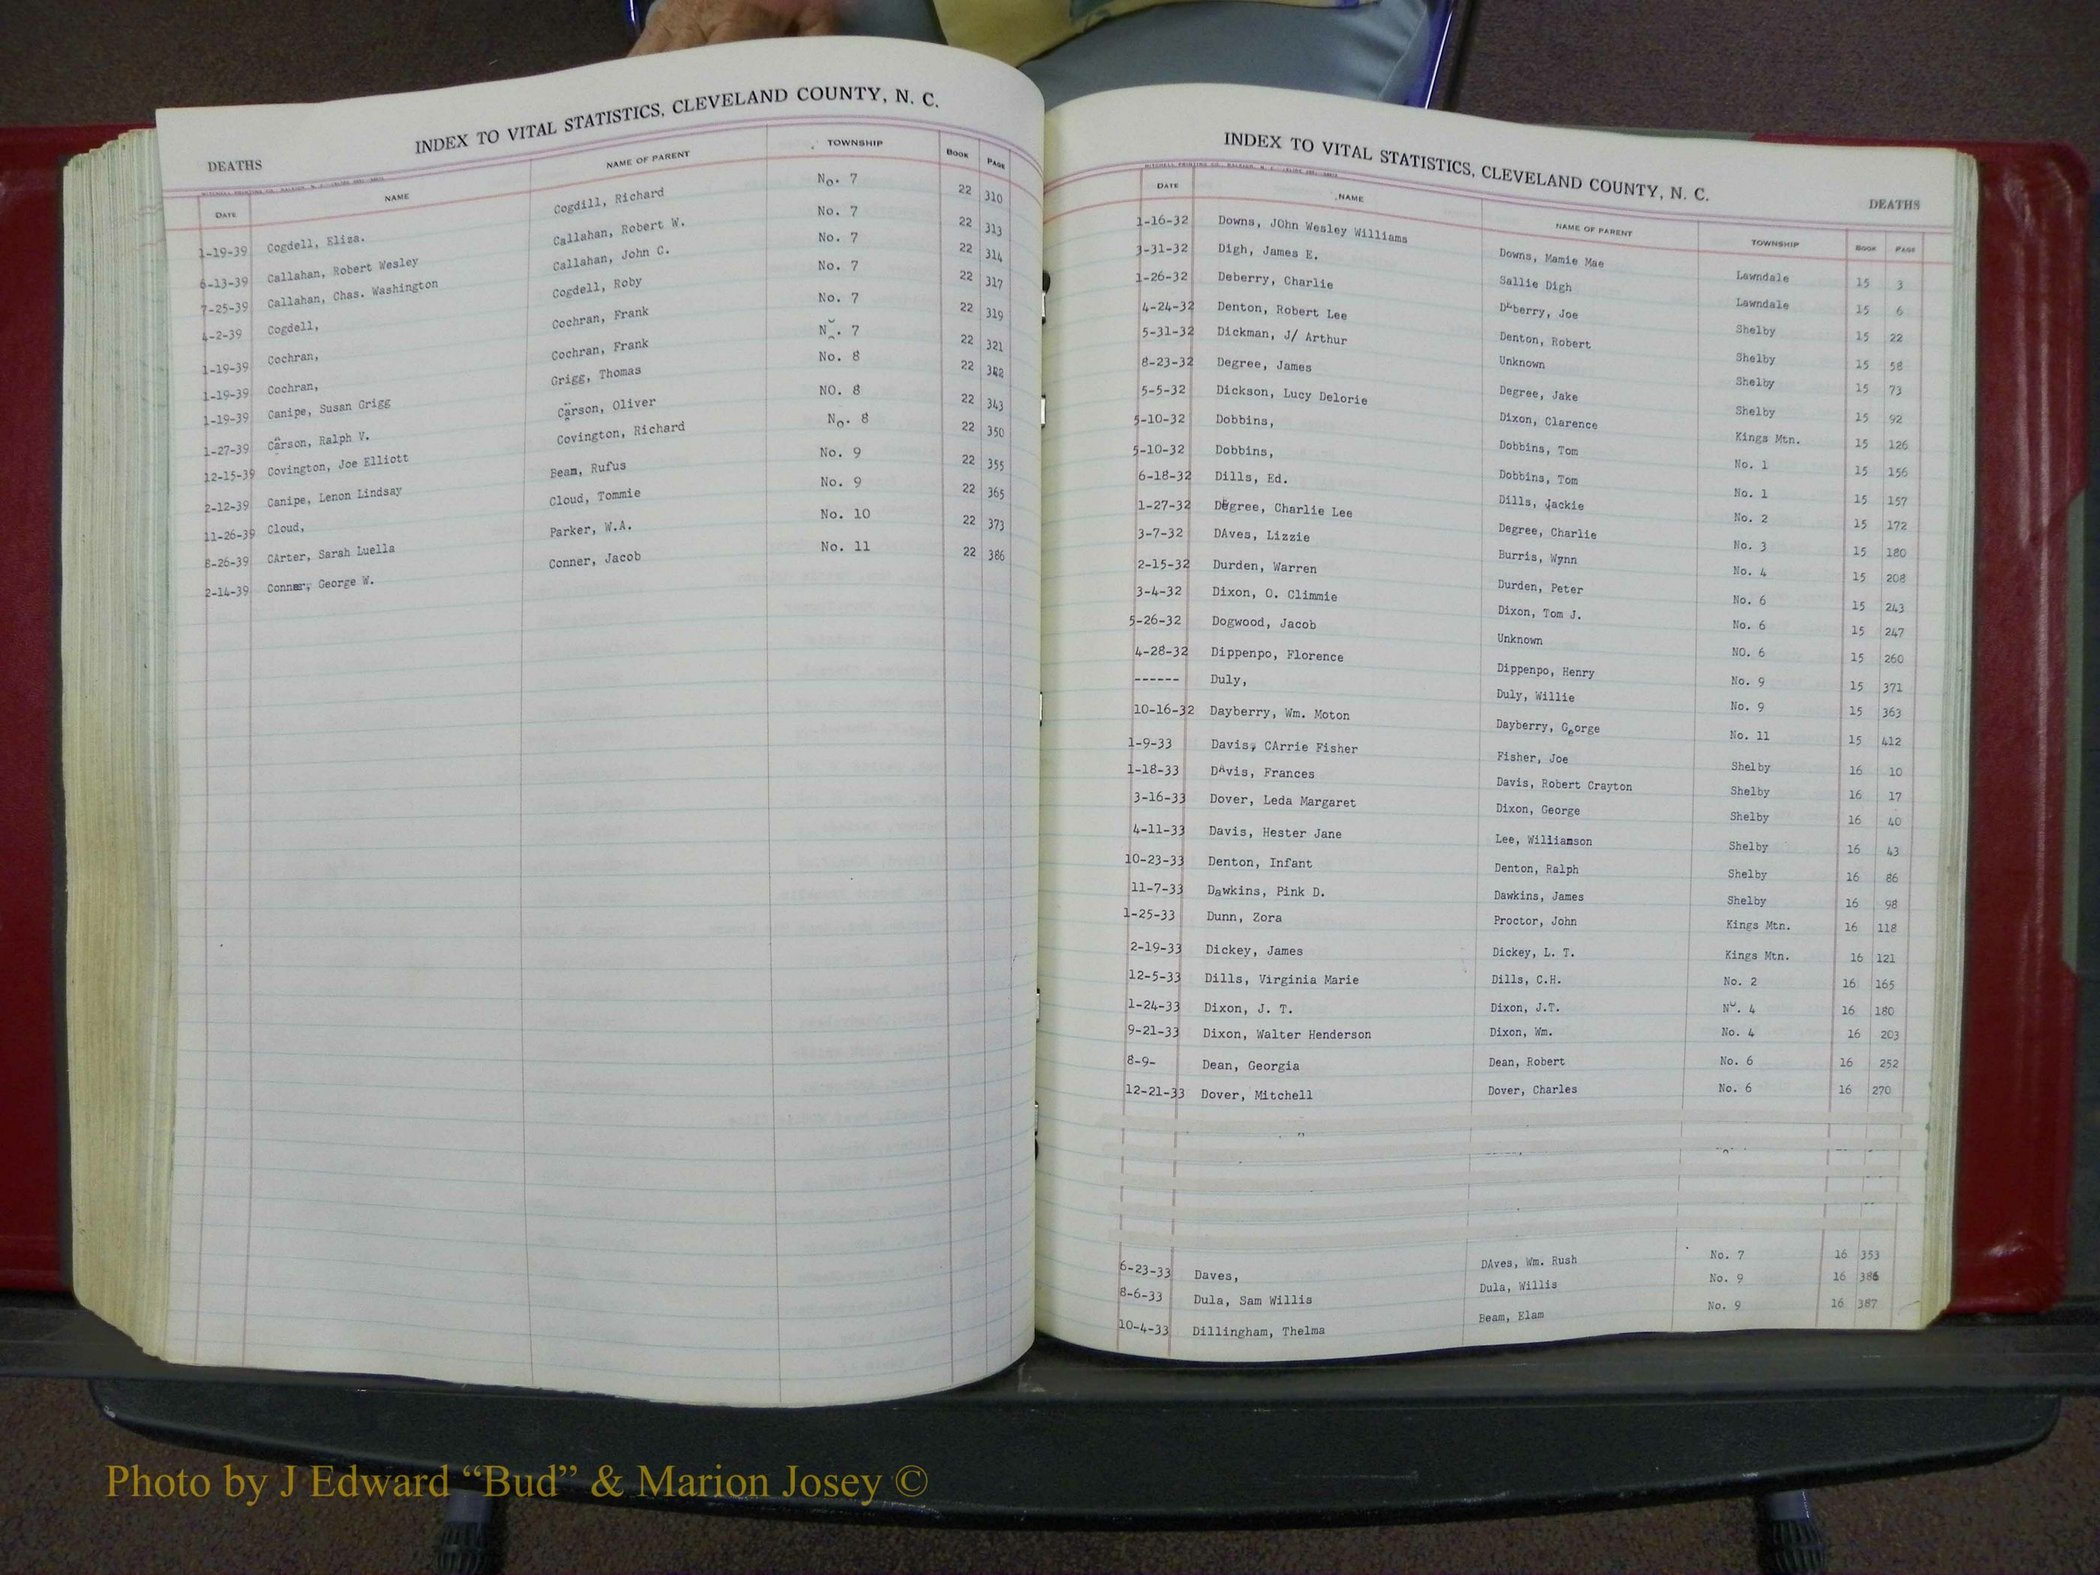 INDEX TO VITAL STATISTICS, CLEVELAND COUNTY, N. C.
DEATHS
DATE NAME NAME OF PARENT TOWNSHIP BOOK PAGE
1-19-39 Cogdell, Eliza. Cogdill, Richard No. 7 22 310
6-13-39 Callahan, Robert Wesley Callahan, Robert W. No. 7 22 313
7-25-39 Callahan, Chas. Washington Callahan, John C. No. 7 22 314
4-2-39 Cogdell, Cogdell, Roby No. 7 22 317
1-19-39 Cochran, Cochran, Frank No. 7 22 319
1-19-39 Cochran, Cochran, Frank No. 7 22 321
1-19-39 Canipe, Susan Grigg Grigg, Thomas No. 8 22 342
1-27-39 Carson, Ralph V. Carson, Oliver NO. 8 22 343
12-15-39 Covington, Joe Elliott Covington, Richard No. 8 22 350
2-12-39 Canipe, Lenon Lindsay Beam, Rufus No. 9 22 355
11-26-39 Cloud, Cloud, Tommie No. 9 22 365
8-26-39 CArter, Sarah Luella Parker, W.A. No. 10 22 373
2-14-39 Conner, George W. Conner, Jacob No. 11 22 386
INDEX TO VITAL STATISTICS, CLEVELAND COUNTY, N. C.
DEATHS
DATE NAME NAME OF PARENT TOWNSHIP BOOK PAGE
1-16-32 Downs, JOhn Wesley Williams Downs, Mamie Mae Lawndale 15 3
3-31-32 Digh, James E. Sallie Digh Lawndale 15 6
1-26-32 Deberry, Charlie Deberry, Joe Shelby 15 22
4-24-32 Denton, Robert Lee Denton, Robert Shelby 15 58
5-31-32 Dickman, J/ Arthur Unknown Shelby 15 73
8-23-32 Degree, James Degree, Jake Shelby 15 92
5-5-32 Dickson, Lucy Delorie Dixon, Clarence Kings Mtn. 15 126
5-10-32 Dobbins, Dobbins, Tom No. 1 15 156
5-10-32 Dobbins, Dobbins, Tom No. 1 15 157
6-18-32 Dills, Ed. Dills, Jackie No. 2 15 172
1-27-32 Degree, Charlie Lee Degree, Charlie No. 3 15 180
3-7-32 DAves, Lizzie Burris, Wynn No. 4 15 208
2-15-32 Durden, Warren Durden, Peter No. 6 15 243
3-4-32 Dixon, O. Climmie Dixon, Tom J. No. 6 15 247
5-26-32 Dogwood, Jacob Unknown NO. 6 15 260
4-28-32 Dippenpo, Florence Dippenpo, Henry No. 9 15 371
------ Duly, Duly, Willie No. 9 15 363
10-16-32 Dayberry, Wm. Moton Dayberry, George No. 11 15 412
1-9-33 Davis, CArrie Fisher Fisher, Joe Shelby 16 10
1-18-33 DAvis, Frances Davis, Robert Crayton Shelby 16 17
3-16-33 Dover, Leda Margaret Dixon, George Shelby 16 40
4-11-33 Davis, Hester Jane Lee, Williamson Shelby 16 43
10-23-33 Denton, Infant Denton, Ralph Shelby 16 86
11-7-33 Dawkins, Pink D. Dawkins, James Shelby 16 98
1-25-33 Dunn, Zora Proctor, John Kings Mtn. 16 118
2-19-33 Dickey, James Dickey, L. T. Kings Mtn. 16 121
12-5-33 Dills, Virginia Marie Dills, C.H. No. 2 16 165
1-24-33 Dixon, J. T. Dixon, J.T. No. 4 16 180
9-21-33 Dixon, Walter Henderson Dixon, Wm. No. 4 16 203
8-9- Dean, Georgia Dean, Robert No. 6 16 252
12-21-33 Dover, Mitchell Dover, Charles No. 6 16 270
6-23-33 Daves, DAves, Wm. Rush No. 7 16 353
8-6-33 Dula, Sam Willis Dula, Willis No. 9 16 386
10-4-33 Dillingham, Thelma Beam, Elam No. 9 16 387
Photo by J Edward “Bud” & Marion Josey ©